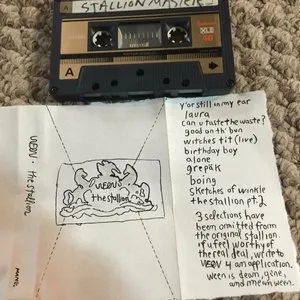 STALLION MASTER
XLII
90
A
WEEN · the stallion
WEEN
the stallion
y'or still in my ear
laura
can u taste the waste?
good on th' bun
witches tit (live)
birthday boy
alone
grepäk
boing
sketches of winkle
the stallion pt. 2
3 selections have
been omitted from
the original stallion
if u feel worthy of
the real deal, write to
WEEN 4 an application.
ween is dean, gene,
and mean ween.